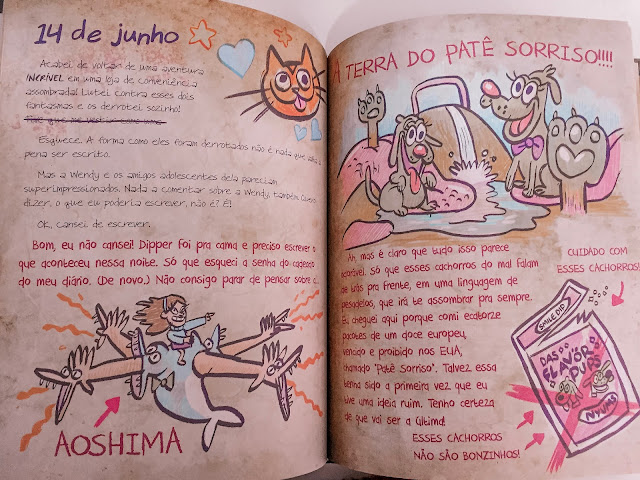 14 de junho
Acabei de voltar de uma aventura
INCRÍVEL em uma loja de conveniência
assombrada! Lutei contra esses dois
fantasmas e os derrotei sozinho!
Esqueça. A forma como eles foram derrotados não é nada que valha a
pena ser escrito.
Mas a Wendy e os amigos adolescentes dela pareciam
superimpressionados. Nada a comentar sobre a Wendy, também. Quero
dizer, o que eu poderia escrever, não é? É!
Ok, cansei de escrever.
Bom, eu não cansei! Dipper foi pra cama e preciso escrever o
que aconteceu nessa noite. Só que esqueci a senha do cadeado
do meu diário. (De novo.) Não consigo parar de pensar sobre a...
AOSHIMA
A TERRA DO PATÊ SORRISO!!!!
Ah, mas é claro que tudo isso parece
adorável. Só que esses cachorros do mal falam
de trás pra frente, em uma linguagem de
pesadelos, que irá te assombrar pra sempre.
Eu cheguei aqui porque comi catorze
pacotes de um doce europeu,
vencido e proibido nos EUA,
chamado "Patê Sorriso". Talvez essa
tenha sido a primeira vez que eu
tive uma ideia ruim. Tenho certeza
de que vai ser a última!
CUIDADO COM
ESSES CACHORROS!
SMILE DIP
DAS
FLAVOR
PUPS
NYUM!
ESSES CACHORROS
NÃO SÃO BONZINHOS!